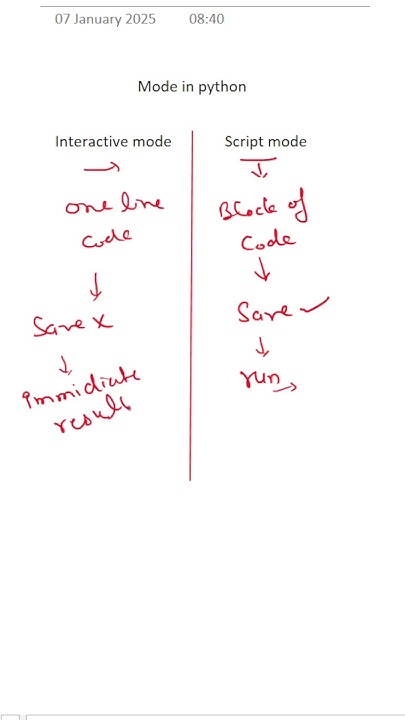 07 January 2025 08:40
Mode in python
Interactive mode
one line
code
Save x
immidiate
result
Script mode
Block of
code
Save ✓
run